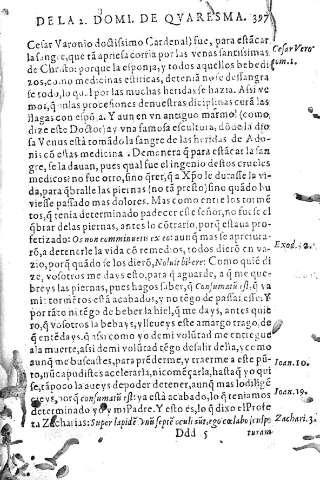 DE LA 2. DOMI. DE QVARESMA. 397
Cesar Varonio doctissimo Cardenal) fue, para estācar
la sangre, que tā apriesa corria por las venas santissimas
de Christo: porque la esponja, y todos aquellos bebedi
zos, como medicinas estiticas, deteniā no se desangra
se todo, lo qual por las muchas heridas se hazia. Assi ve
mos, q̄ en las procesiones de nuestras diciplinas curā las
llagas con espōja. Y aun en vn antiguo marmol (como
dize este Doctor) ay vna famosa escultura, dōde la dio
sa Venus està tomādo la sangre de las heridas de Ado-
nis cō estas medicinas. Demanera q̄ para estācar la san
gre, se la dauan, pues qual fue el ingenio destos crueles
medicos? no fue otro, sino q̄rer, q̄ a Xp̄o le durasse la vi-
da, para q̄bralle las piernas (no tā presto) sino quādo hu
uiesse passado mas dolores. Mas como entre los tormē
tos, q̄ tenia determinado padecer esse señor, no fuesse el
q̄brar de las piernas, antes lo cōtrario, porq̄ estaua pro-
fetizado: Os non comminuetis ex eo: aunq̄ mas se apressura-
rō, a detenerle la vida cō remedios, todos dierō en va-
zio, porq̄ quādo se los dierō, Noluit bibere: Como quiē di
ze, vosotros me days esto, para q̄ aguarde, a q̄ me que-
breys las piernas, pues hagos saber, q̄ Consumatū est: q̄ ya
mis tormētos està acabados, y no tēgo de passar esse: Y
por tāto ni tēgo de beber la hiel, q̄ me days, antes quie
ro, q̄ vosotros la bebays, y lleueys este amargo trago, de
q̄ entēdays, q̄ assi como yo de mi volūtad me entregue
a la muerte, assi de mi volūtad tēgo de salir della, y como
aunq̄ me buscastes, para prēderme, y traerme a este pū-
to, nūca pudistes acelerarla, ni comēçarla, hasta q̄ yo qui
se, tāpoco la aueys de poder detener, aunq̄ mas lo dilige
cieys, porq̄ consumatū est: ya està acabado, lo q̄ teniamos
determinado yo y mi Padre. Y esto es, lo q̄ dixo el Profe
ta Zacharias: Super lapidē vnū septē oculi sūt, ego cælabo sculp
Ddd 5 turam
Cesar Varo
tom. 1.
Exod. 12.
Ioan. 10.
Ioan. 19.
Zachari. 3.